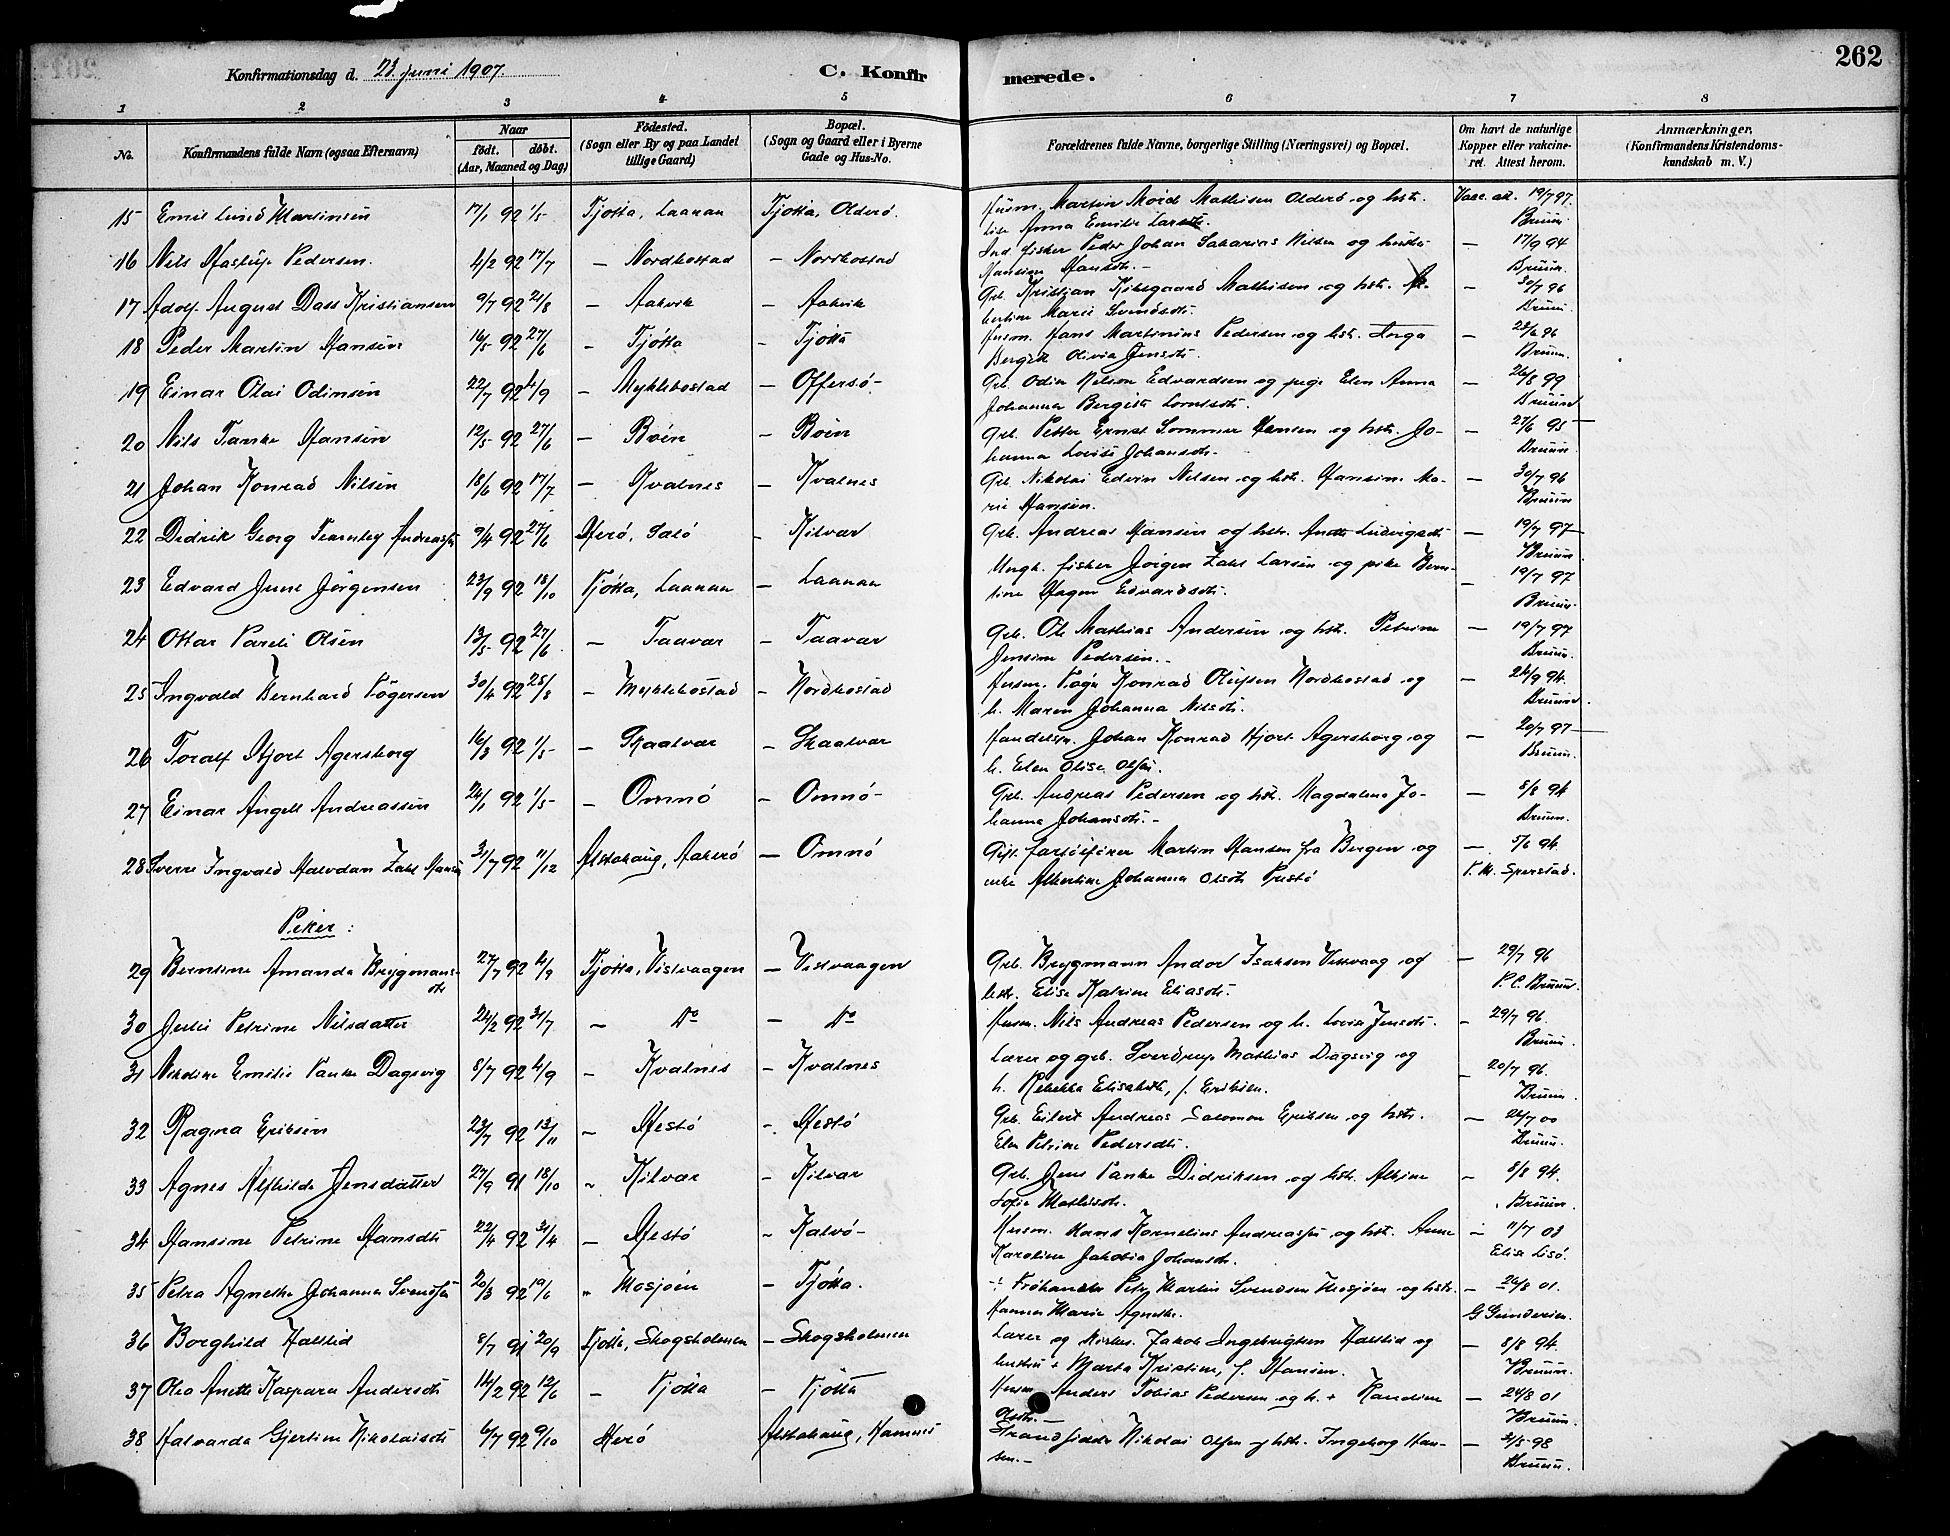 262
Konfirmationsdag d. 23 juni 1907.
C. Konfirmerede.
1 2 3 4 5 6 7 8
No.
Konfirmandens fulde Navn (ogsaa Efternavn)
Naar
födt. döbt.
(Aar, Maaned og Dag)
Födested.
(Sogn eller By og paa Landet
tillige Gaard)
Bopæl.
(Sogn og Gaard eller i Byerne
Gade og Hus-No.
Forældrenes fulde Navne, borgerlige Stilling (Næringsvei) og Bopæl.
Om havt de naturlige
Kopper eller vakcine-
ret. Attest herom.
Anmærkninger.
(Konfirmandens Kristendoms-
kundskab m. V.)
15 Emil Martinsen 17/1 92 1/5 Tjøtta, Laanan Tjøtta, Olderö. Husm. Martin Mathisen Olderö og hstr. Vacc. att. 19/7 97.
Anna Emilie Larsdtr. Bruun
16 Nils Hastup Pedersen. 4/2 92 17/7 — Nordbostad — Nordbostad Ind. fisker Peder Johan Sakarias Nilsen og hustr. — 17/9 94
Hansine Hansdtr. — Bruun.
17 Adolf August Dass Kristiansen 9/7 92 21/8 — Aakvik — Aakvik Grb. Kristian Mathisen og hstr. Al- — 30/7 96
bertine Marie Svendsdtr. Bruun.
18 Peder Martin Hansen 16/5 92 27/6 — Tjøtta — Tjøtta Husm. Hans Martinius Pedersen og hstr. Inga — 23/6 96
Bergit Olivia Jensdtr. Bruun.
19 Einar Olai Odinsen 22/7 92 4/9 — Myklebostad — Offersö — Grb. Odin Nelson Edvardsen og pige Elen Anna — 26/8 99
Johanna Bergite Lorntsdtr. Bruun
20 Nils Tanke Hansen 12/5 92 27/6 — Böen — Böen Grb. Petter Ernst Sommer Hansen og hstr. Jo- — 27/6 95
hanna Lovise Johansdtr. Bruun
21 Johan Konrad Nilsen 18/6 92 17/7 — Kvalnes — Kvalnes Grb. Nikolai Edvin Nilsen og hstr. Hansine Ma- — 30/7 96
rie Hansen. Bruun
22 Didrik Georg Fearnley Andreassen 9/4 92 27/6 Herö, Salö — Kilvær Grb. Andreas Hansen og hstr. Anette Ludvigsdtr. — 19/7 97
Bruun
23 Edvard June Jörgensen 23/9 92 18/10 Tjøtta, Laanan — Laanan Ungk. fisker Jörgen Zahl Larsen og pike Bern- — 19/7 97
tine Hagen Edvardsdtr. Bruun.
24 Ottar Pareli Olsen 13/5 92 27/6 — Taavær — Taavær Grb. Ole Mathias Andersen og hstr. Petrine — 19/7 97
Jensine Pedersen. Bruun.
25 Ingvald Bernhard Tögersen 30/4 92 28/8 — Myklebostad — Nordbostad Husm. Töger Konrad Olufsen Nordbostad og — 24/9 94.
h. Maren Johanna Nilsdtr. Bruun.
26 Toralf Hjort Agersborg 16/3 92 1/5 — Skaalvær — Skaalvær Handelsm. Johan Konrad Hjort Agersborg og — 20/7 97
h. Elen Olise Olsen. Bruun.
27 Einar Angell Andreassen 24/1 92 1/5 — Omnö — Omnö — Grb. Andreas Pedersen og hstr. Magdalena Jo- — 8/8 94
hanna Johansdtr. Bruun.
28 Sverre Ingvald Halvdan Zahl Hansen 31/7 92 11/12 Alstahaug, Aakerö — Omnö Gift. fartöiförer Martin Hansen fra Bergen og — 5/6 94.
enke Albertine Johanna Olsdtr. Prestö P. M. Sperstad.
Piker:
29 Berntine Amanda Brygmans- 27/7 92 4/9 Tjøtta, Vistvaagen — Vistvaagen Grb. Brygmann Andor Isaksen Vistvaag og — 29/7 96
dtr hstr. Elise Katrine Eliasdtr. P. C. Bruun.
30 Julie Petrine Nilsdatter 24/2 92 31/7 — Do — Do Husm. Nils Andreas Pedersen og h. Lovise Jensdtr. — 29/7 96.
Bruun.
31 Nikoline Emilie Tanke Dagsvig 8/7 92 4/9 — Kvalnes — Kvalnes Lærer og grb. Sverdrup Mathias Dagsvig og — 20/7 96.
h. Rebekka Elisabeth, f. Eriksen. Bruun
32 Ragna Eriksen 23/7 92 13/11 — Hestö — Hestö Grb. Eilert Andreas Salomon Eriksen og hstr. — 26/7 00
Elen Petrine Pedersdtr. Bruun.
33 Agnes Alfhilde Jensdatter 27/9 91 18/10 — Kilvær — Kilvær Grb. Jens Tanke Didriksen og hstr. Albine — 8/8 94.
Sofie Mathisdtr. Bruun.
34 Hansine Petrine Hansdtr 22/4 92 31/4 — Hestö — Kalvö — Husm. Hans Kornelius Andreassen og hstr. Anne — 11/7 03
Karoline Jakobia Johansdtr. Elise Lisö.
35 Petra Agnethe Johanna Svendsen 20/3 92 19/6 " Mosjöen — Tjøtta. Petter Martin Svendsen Mosjöen og hstr. — 26/8 01.
Hanna Marie Agnethe. G Gundersen.
36 Borghild Halslid 8/7 91 20/9 Tjøtta, Skogsholmen — Skogsholmen Lærer og Jakob Ingebrigtsen Halslid og — 8/8 94.
hustru + Marta Kristine, f. Hansen. Bruun.
37 Olea Anette Kaspara Andersdtr 14/2 92 12/6 — Tjøtta — Tjøtta Husm. Anders Tobias Pedersen og h. + Randine — 24/8 01
Olsdtr. — Bruun.
38 Halvarda Gjertine Nikolaisdtr 6/7 92 9/10 Herö Alstahaug, Hamnes Strandsidder Nikolai Olsen og hstr. Ingeborg Han- — 2/5 98
sen. — Bruun.